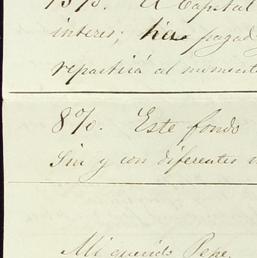 15%. El Capital
interes; ha pagad
repartirá al moment
8%. Este fondo
Sin y con diferentes
Mi querido Pepe,